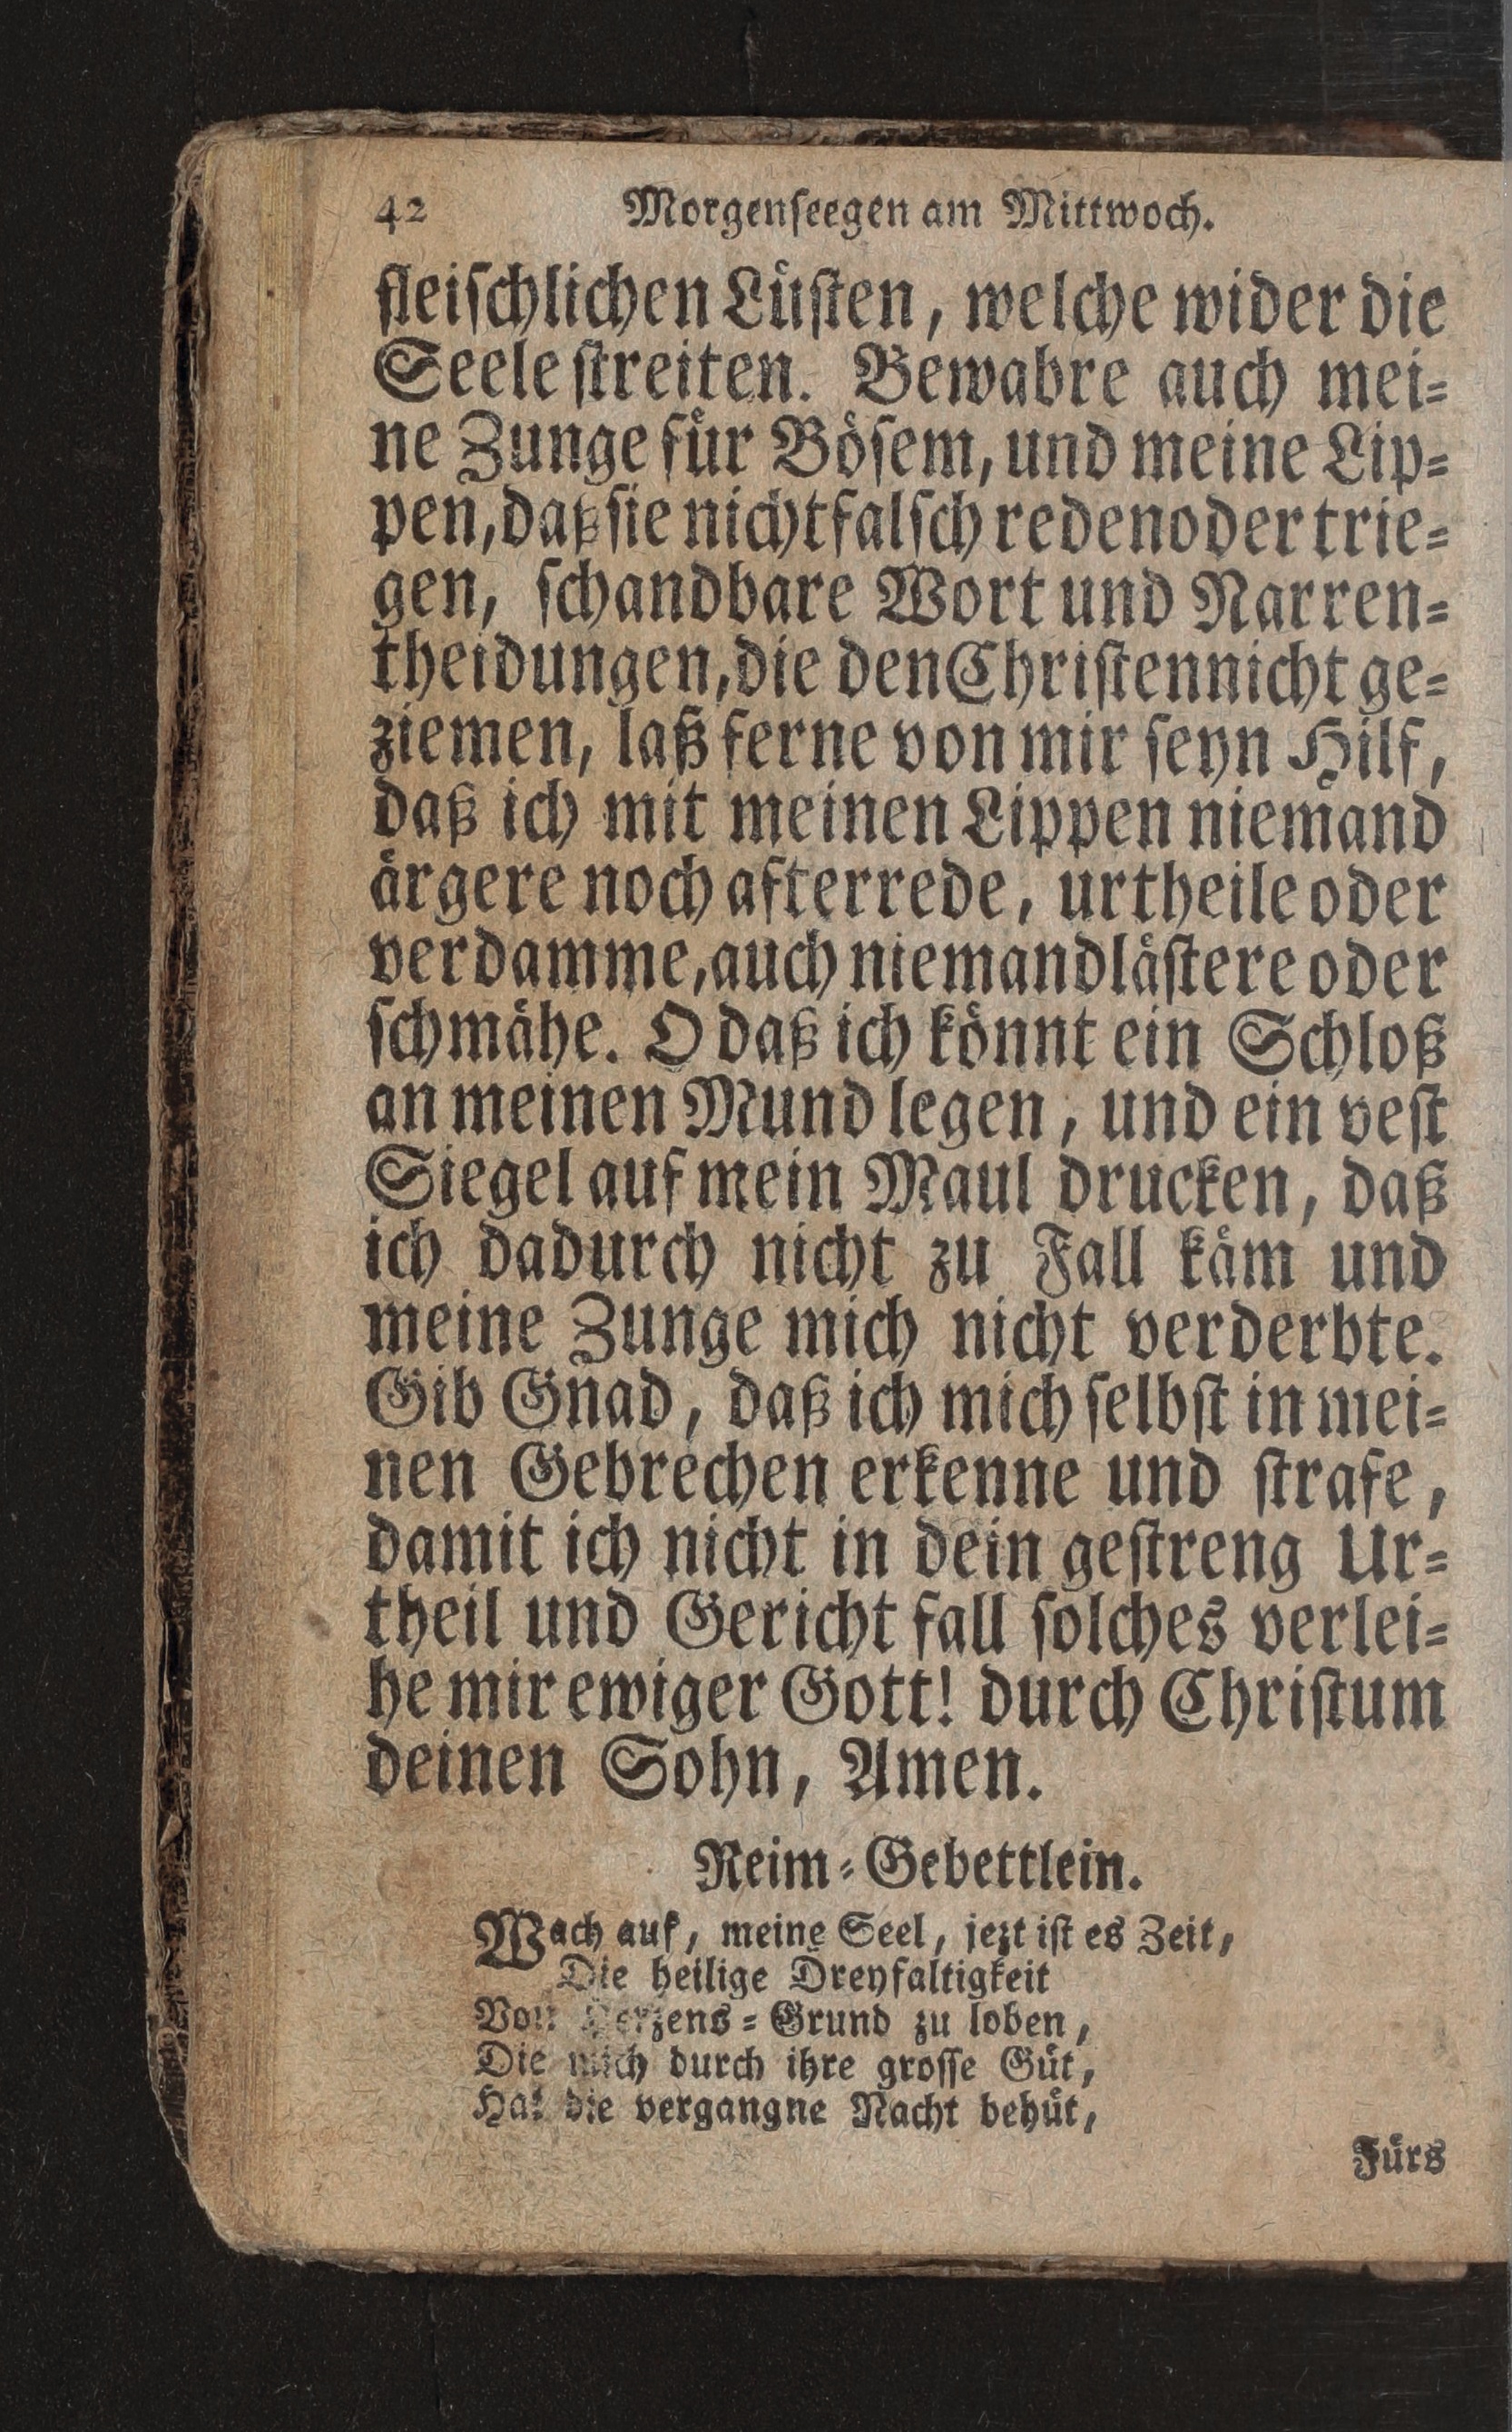 42 Morgenseegen am Mittwoch.
fleischlichen Lüsten, welche wider die
Seele streiten. Bewabre auch mei=
ne Zunge für Bösem, und meine Lip=
pen, daß sie nicht falsch reden oder trie=
gen, schandbare Wort und Narren=
theidungen, die den Christen nicht ge=
ziemen, laß ferne von mir seyn Hilf,
daß ich mit meinen Lippen niemand
ärgere noch afterrede, urtheile oder
verdamme, auch niemand lästere oder
schmähe. O daß ich könnt ein Schloß
an meinen Mund legen, und ein vest
Siegel auf mein Maul drucken, daß
ich dadurch nicht zu Fall käm und
meine Zunge mich nicht verderbte.
Gib Gnad, daß ich mich selbst in mei=
nen Gebrechen erkenne und strafe,
damit ich nicht in dein gestreng Ur=
theil und Gericht fall solches verlei=
he mir ewiger Gott! durch Christum
deinen Sohn, Amen.
Reim=Gebettlein.
Wach auf, meine Seel, jezt ist es Zeit,
Die heilige Dreyfaltigkeit
Von Herzens=Grund zu loben,
Die mich durch ihre grosse Güt,
Hat die vergangne Nacht behüt,
Fürs